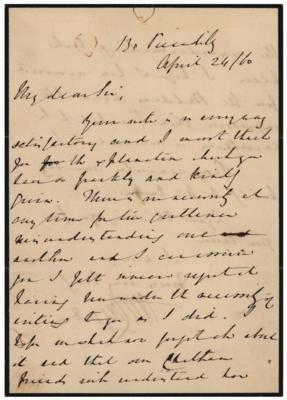 130 Piccadilly
April 24/60
My dear Sir,
Your note is in every way
satisfactory and I must thank
you for the explanation which you
have so frankly and kindly
given. There is no security at
any time for two gentlemen
misunderstanding one
another and I can assure
you I felt sincere regret
having been under the necessity of
writing to you as I did. I
hope we shall now forget all about
it and that our Chatham
friends will understand how